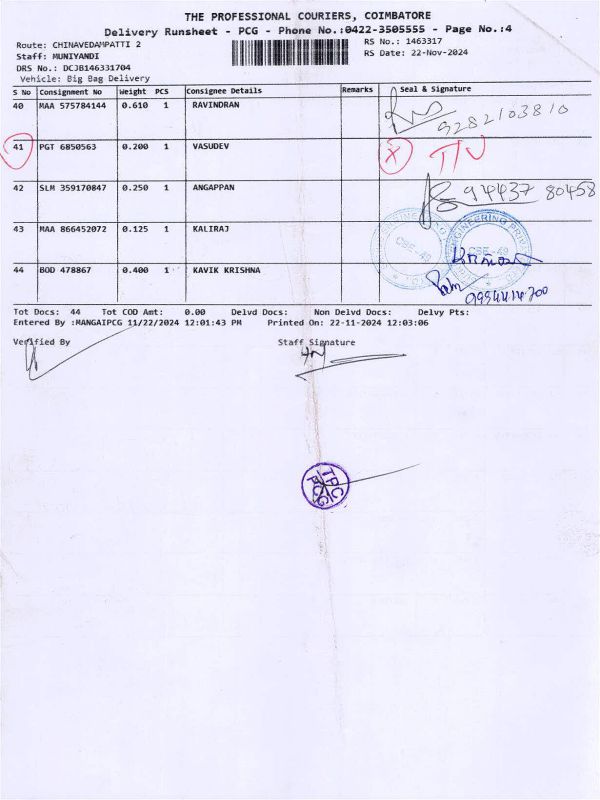 THE PROFESSIONAL COURIERS, COIMBATORE
Delivery Runsheet - PCG - Phone No.:0422-3505555 - Page No.:4
Route: CHINAVEDAMPATTI 2
RS No.: 1463317
Staff: MUNIYANDI
RS Date: 22-Nov-2024
DRS No.: DCJB146331704
Vehicle: Big Bag Delivery
S No Consignment No Weight PCS Consignee Details Remarks Seal & Signature
40 MAA 575784144 0.610 1 RAVINDRAN
9282103810
41 PGT 6850563 0.200 1 VASUDEV
42 SLM 359170847 0.250 1 ANGAPPAN
94437 80458
43 MAA 866452072 0.125 1 KALIRAJ
44 BOD 478867 0.400 1 KAVIK KRISHNA
Tot Docs: 44 Tot COD Amt: 0.00 Delvd Docs: Non Delvd Docs: Delvy Pts:
Entered By :MANGAIPCG 11/22/2024 12:01:43 PM Printed On: 22-11-2024 12:03:06
Verified By Staff Signature
TPC
PCG